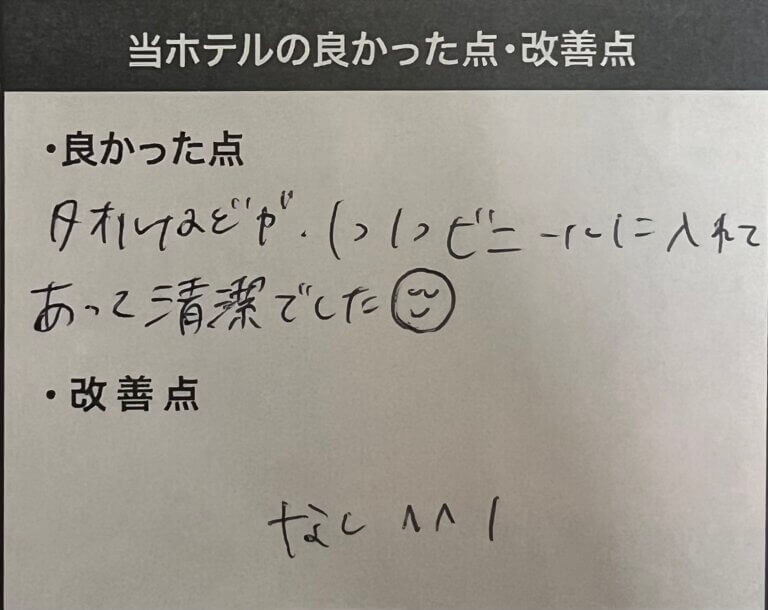 当ホテルの良かった点・改善点
・良かった点
タオルなどが、1つ1つビニールに入れて
あって清潔でした
・改善点
なし ^^!